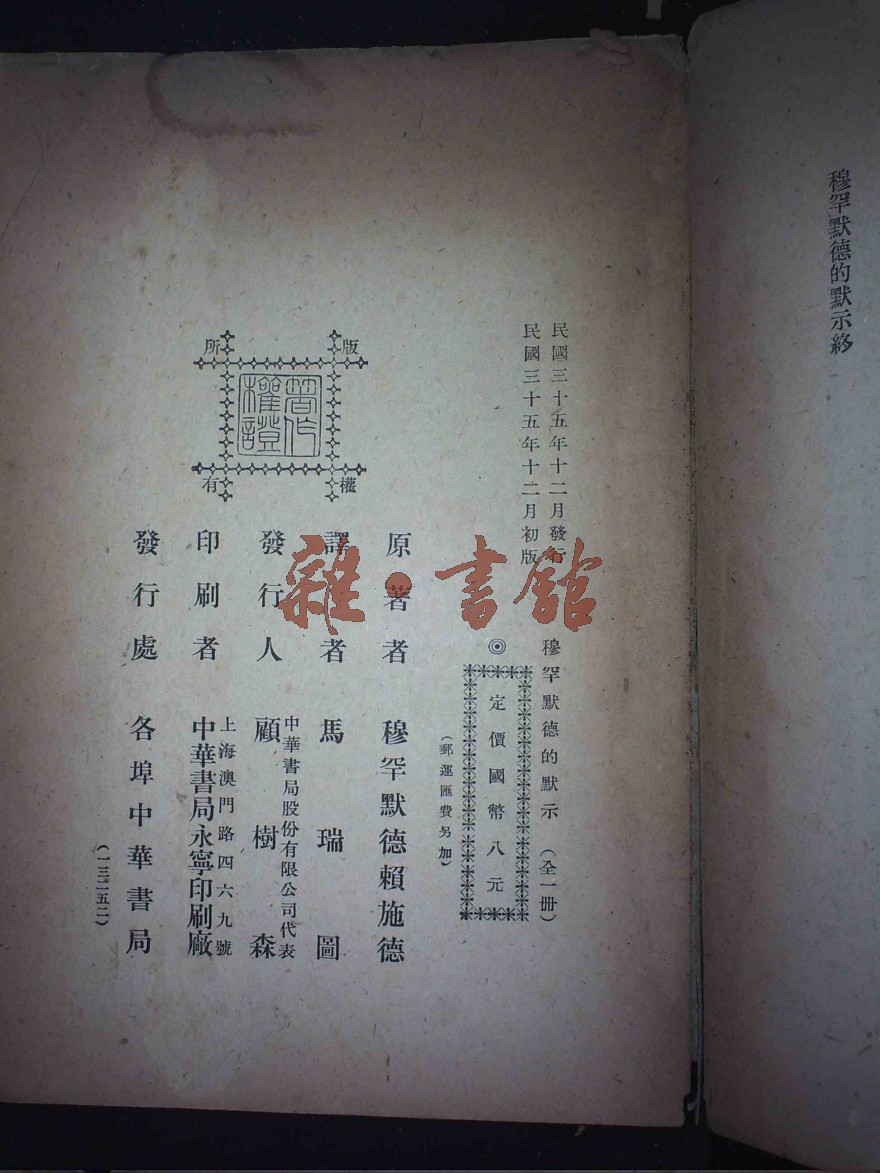 穆罕默德的默示終
民國三十五年十二月發行
民國三十五年十二月初版
穆罕默德的默示 (全一冊)
◎定價國幣八元
(郵運匯費另加)
原著者 穆罕默德賴施德
譯者 馬瑞圖
發行人 中華書局股份有限公司代表
顧樹森
印刷者 上海澳門路四六九號
中華書局永寧印刷廠
發行處 各埠中華書局
(一三二五二)
版權所有
著作權證
雜·書館